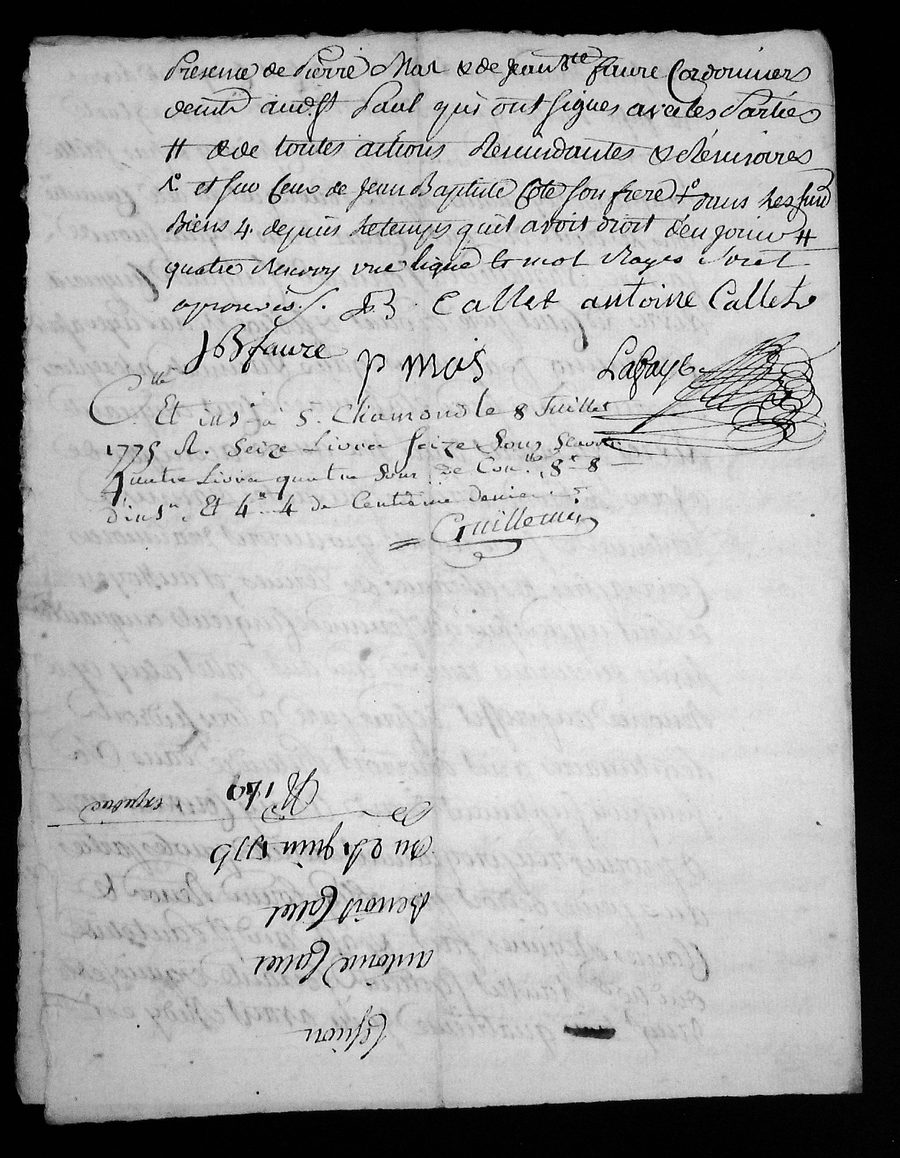 presence de Pierre Mas & de Jean Bte faure Cordonniers
demt aud. St Paul qui ont signes avec les parties
# & de toutes actions Recindantes & Récisoires
et sur ceux de Jean Baptiste Cote son frere dans les fund
Biens 4 depuis le temps qu'il avoit droit d'en jouir #
quatre Renvoy une ligne le mot Rayes Soret
aprouvés /. JB. Callet antoine Callet
JB faure p mas Lafaye
C.lle Et ins. a St. Chamond le 8 Juillet
1775 R. Seize Livres seize sous Scavoir
Quatre Livres quatre sous de Con.lle 8# 8
d'ins.n Et 4# 4 de Centieme denier
Guillemin
Cession
antoine Callet
Benoit Callet
Du 25 juin 1775
No 149
expédié